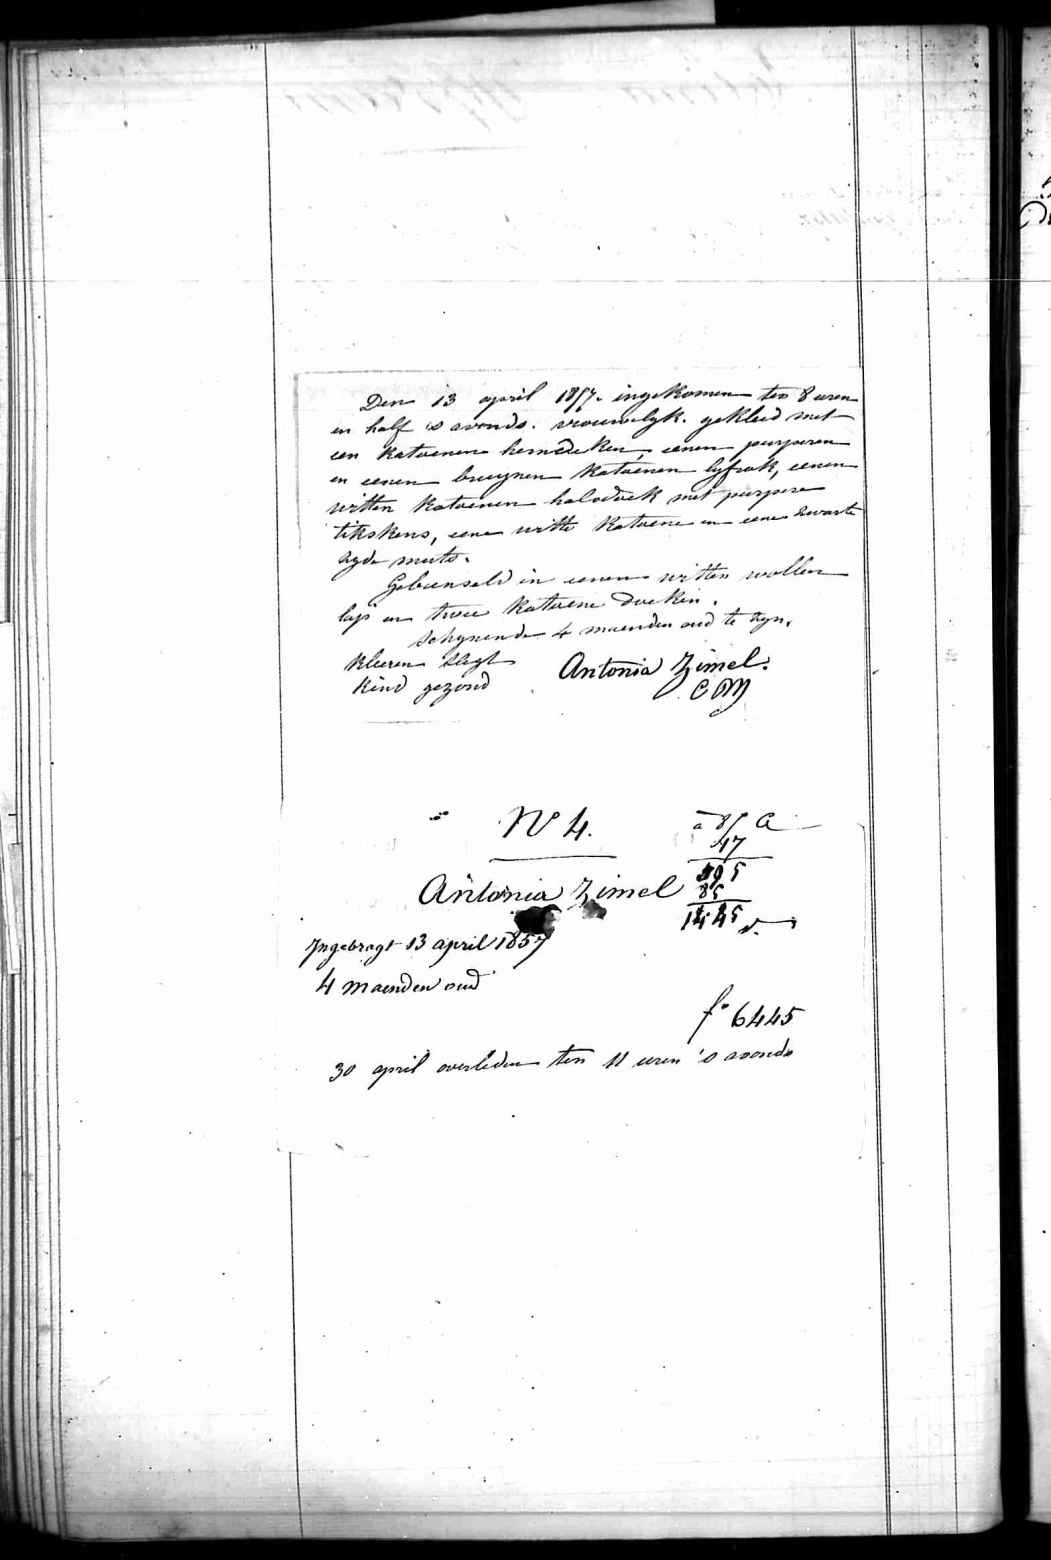 Den 13 april 1857. ingekomen ten 8 uren
en half 's avonds. vrouwelyk. gekleed met
een katoenen hemdeken, eenen purperen
en eenen bruynen katoenen lyfrok, eenen
witten katoenen halsdoek met purpere
tikskens, eene witte katoene en eene zwarte
zyde muts.
Gebunseld in eenen witten wollen
lap en twee katoene doeken.
Schynende 4 maenden oud te zyn.
kleeren slegt
kind gezond
Antonia Zimel.
C M
N° 4.
a 85 C
17
595
85
14.45
Antonia Zimel
Ingebragt 13 april 1857
4 maenden oud
f° 6445
30 april overleden ten 11 uren 's avonds